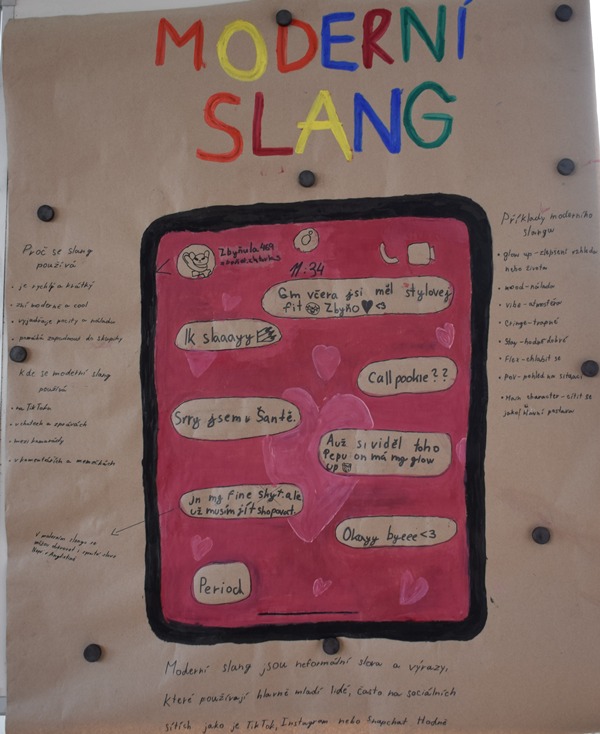 MODERNÍ
SLANG
Zbyňula469
11:34
Gm včera jsi měl stylovej
fit Zbyňo <3
Ik slaaayy
Call pookie??
Srry jsem v Šantě.
Auž si viděl toho
Pepu on má mg glow
up
jn my fine shyt.ale
už musím jít shopovat.
Okayy byeee <3
Period
Proč se slang
používá
• je rychlý a krátký
• zní moderně a cool
• vyjadřuje pocity a náladu
• pomáhá zapadnout do skupiny
Kde se moderní slang
používá
• na TikToku
• v chatech a zprávách
• mezi kamarády
• v komentářích a
V moderním slangu se
Příklady moderního
slangu
• glow up - zlepšení vzhledu
nebo života
• mood - nálada
• vibe - atmosfér
• Cringe - trapné
• Slay - hodně dobré
• Flex - chlubit se
• Pov - pohled na situaci
• Main character - cítit se
jako hlavní postava
Moderní slang jsou neformální slova a výrazy,
které používají hlavně mladí lidé, často na sociálních
sítích jako je TikTok, Instagram nebo Snapchat Hodně